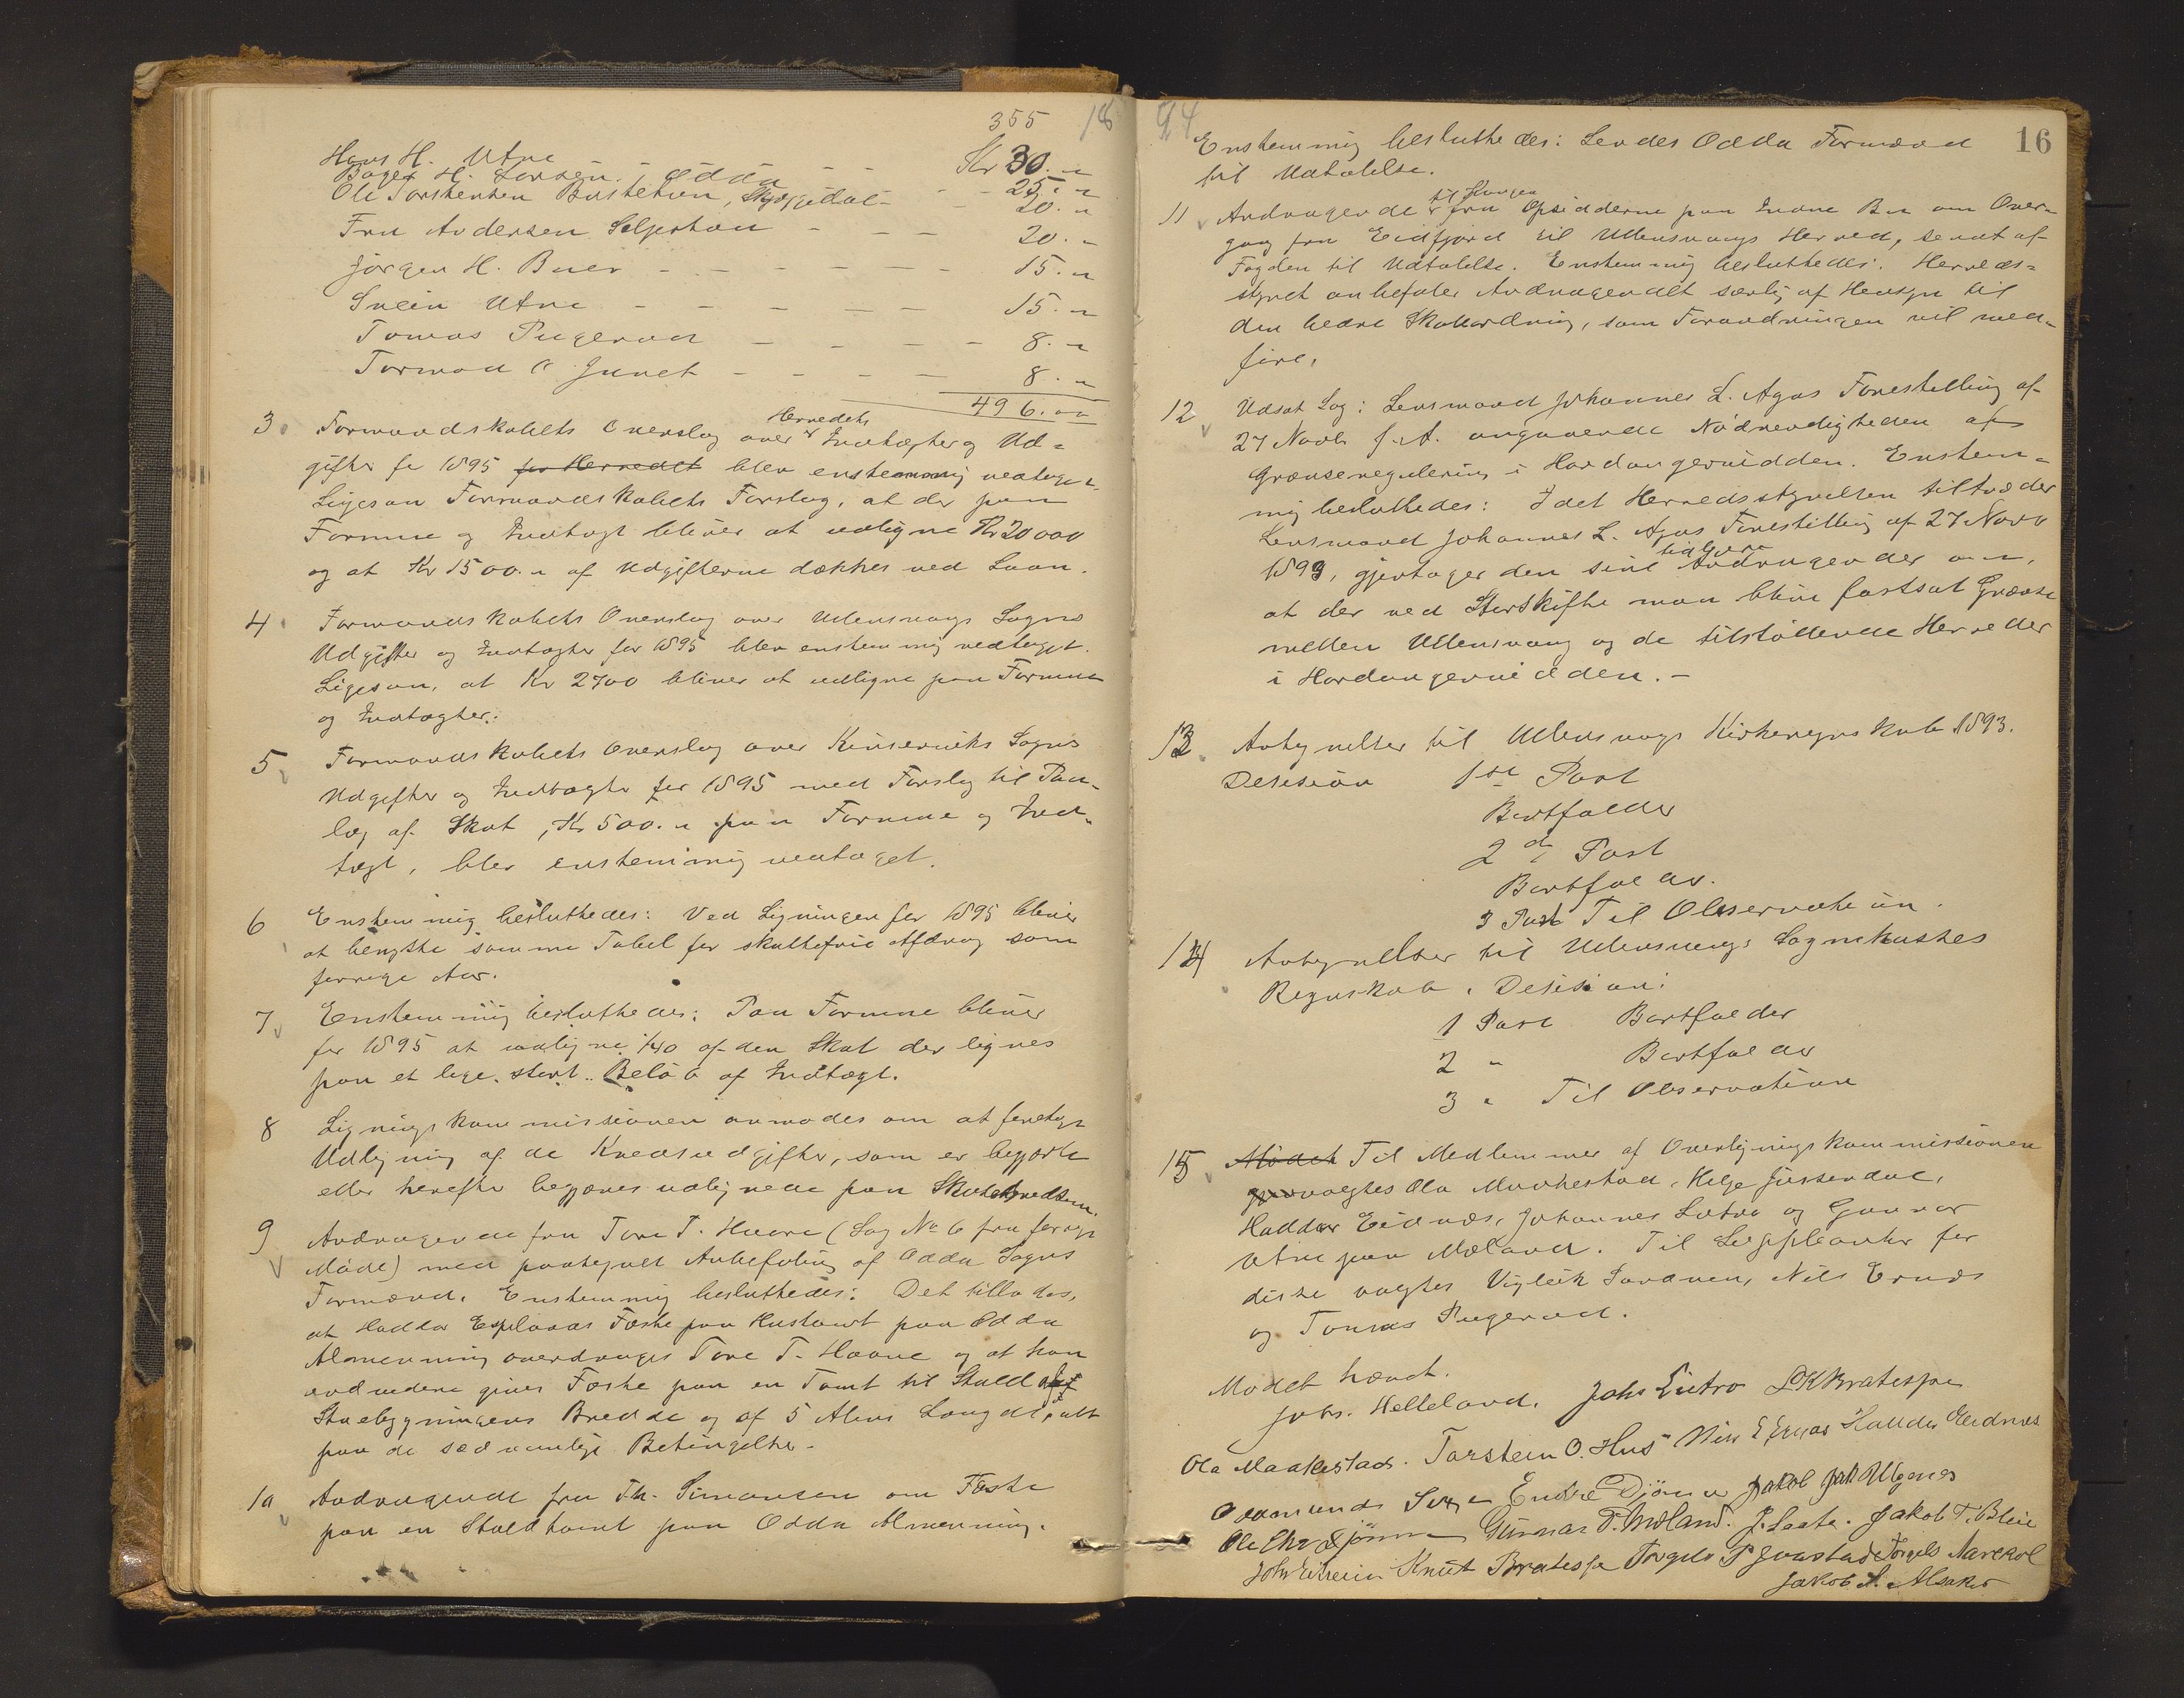 355 18
Hans H. Utne - - - Kr 30. "
Bager H. Larsen. Odda - - 25. "
Ole Torstensen Bustetun, Skjeggedal - - 20. "
Fru Andersen Seljestad - - - 20. "
Jörgen H. Buer - - - - - 15. "
Svein Utne - - - - - 15. "
Tomas Pugerud - - - - 8. "
Tormod O Junet - - - - 8. "
496. 00
3. Formandskabets Overslag over Herredets Indtægter og Ud-
gifter for 1895 for Herredet blev enstemmig vedtaget.
Ligesaa Formandskabets Forslag, at der paa
Formue og Indtægt bliver at udligne Kr 20000
og at Kr 1500. " af Udgifterne dækkes ved Laan.
4. Formandskabets Overslag over Ullensvangs Sogns
Udgifter og Indtægter for 1895 blev enstemmig vedtaget.
Ligesaa, at Kr 2700 bliver at udligne paa Formue
og Indtægter.
5 Formandskabets Overslag over Kinserviks Sogns
Udgifter og Indtægter for 1895 med Forslag til Paa-
læg af Skat, Kr 500. " paa Formue og Ind-
tægt, blev enstemmig vedtaget.
6 Enstemmig besluttedes: Ved Ligningen for 1895 bliver
at benytte samme Tabel for skattefrie Afdrag som
forrige Aar.
7 Enstemmig besluttedes: Paa Formue bliver
for 1895 at udligne 1/40 af den Skat der lignes
paa et lige stort Beløb af Indtægt.
8 Ligningskommissionen anmodes om at foretage
Udligning af de Kredsudgifter, som er begjærte
eller herefter begjæres udlignede paa Skolekredsene.
9 Andragende fra Tore T. Haave (Sag No 6 fra forrige
Møde) med paategnet Anbefaling af Odda Sogns
Formænd. Enstemmig besluttedes: Det tillades,
at Haddor Espelands Fæste paa Hustomt paa Odda
Almenning overdrages Tore T. Haave og at han
endvidere gives Fæste paa en Tomt til Stald af
Stuebygningens Bredde og af 5 Alens Længde, alt
paa de sædvanlige Betingelser.
10 Andragende fra Th. Simonsen om Fæste
paa en Staldtomt paa Odda Almenning.
94 16
Enstemmig besluttedes: Sendes Odda Formænd
til Udtalelse.
11 Andragende til Kongen fra Opsidderne paa Indre Bu om Over-
gang fra Eidfjord til Ullensvangs Herred, sendt af
Fogden til Udtalelse. Enstemmig besluttedes: Herreds-
styret anbefaler Andragendet særlig af Hensyn til
den bedre Skoleordning, som Forandringen vil med-
føre.
12 Udsat Sag: Lensmand Johannes L. Agas Forestilling af
27 Novb f. A. angaaende Nødvendigheden af
Grænseregulering i Hardangervidden. Enstem-
mig besluttedes: Idet Herredsstyrelsen tiltræder
Lensmand Johannes L. Agas Forestilling af 27 Novb
1893, gjentager den sine tidligere Andragender om,
at der ved Storskifte maa blive fastsat Grænse
mellem Ullensvang og de tilstødende Herreder
i Hardangervidden. -
13 Antegnelser til Ullensvangs Kirkeregnskab 1893.
Desision 1ste Post
Bortfalder
2den Post
Bortfalder.
3 Post Til Observation.
14 Antegnelser til Ullensvangs Sognekasses
Regnskab. Desision:
1 Post Bortfalder
2 " Bortfalder
3 " Til Observation
15 Mødet Til Medlemmer af Overligningskommissionen
valgtes Ola Maakestad, Helge Jussendal,
Haddor Eidnæs, Johannes Lutro og Gunnar
Utne paa Mæland. Til Suppleanter for
disse valgtes Vigleik Jordnen, Nils Ernæs
og Tomas Pugerud.
Mødet hævet.
Johs. Helleland. Johs Lutro L K Bratespe
Ola Maakestad. Torstein O. Hus Nils E Ernæs Haddor Eidnæs
Aamund Endre Djönne Jakob Jak Ulgenes
Ole Chr Djönne Gunnar T. Mæland. J. Laate. Jakob T. Bleie
Knut Bratespe Torgils P Jaastad Torgils Aarekol
Jakob A. Alsaker